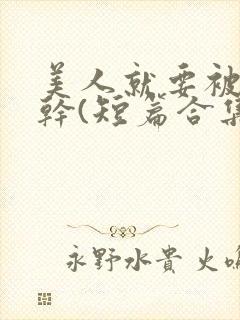 美人就要被
幹(短篇合集
永野水貴 火鳴